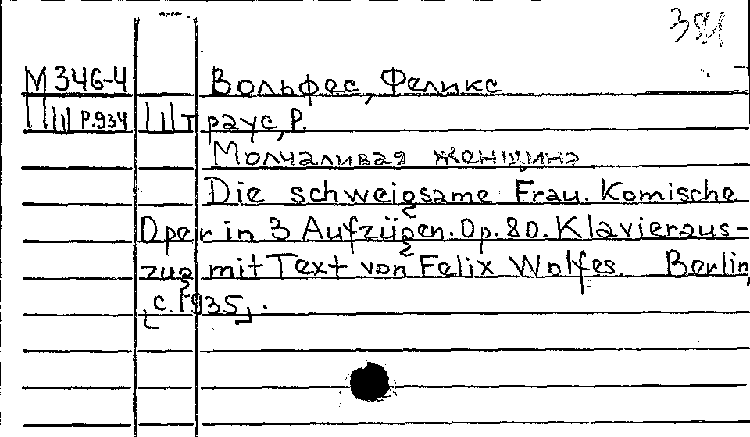 М 346-4 Вольфес, Феликс
Ш Р.934 Штраус, Р.
Молчаливая женщина
Die schweigsame Frau. Komische
Oper in 3 Aufzügen. Op. 80. Klavieraus-
zug mit Text von Felix Wolfes. Berlin,
[c. 1935].